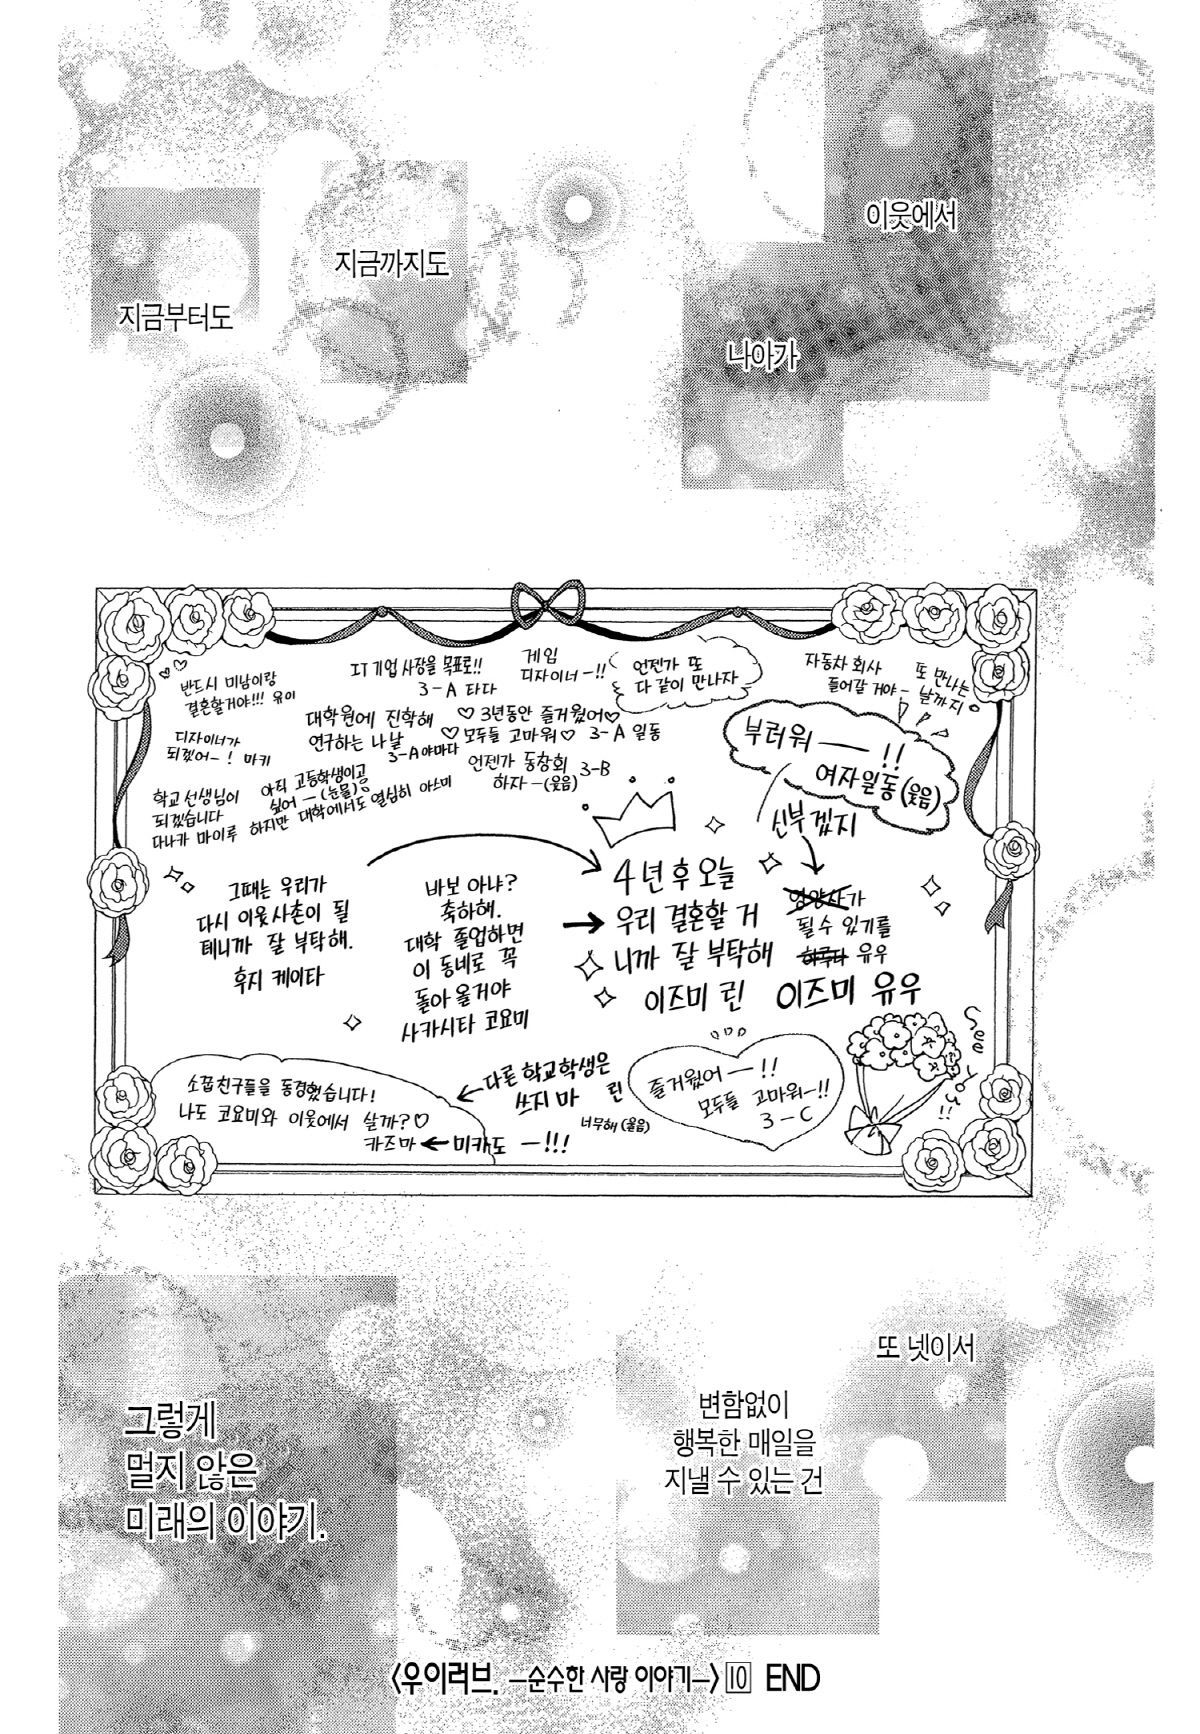 이웃에서
나아가
지금까지도
지금부터도
반드시 미남이랑
결혼할거야!!! 유이
IT 기업 사장을 목표로!!
3-A 타다
게임
디자이너-!!
언젠가 또
다 같이 만나자
자동차 회사
들어갈 거야-
또 만나는
날까지
디자이너가
되겠어-! 마키
대학원에 진학해
연구하는 나날
3-A 야마다
♡ 3년동안 즐거웠어♡
♡ 모두들 고마워♡ 3-A 일동
언젠가 동창회
하자-(웃음) 3-B
학교 선생님이
되겠습니다
다나카 마이루
아직 고등학생이고
싶어-(눈물)
하지만 대학에서도 열심히 아스미
부러워-!!
여자일동(웃음)
신부겠지
그때는 우리가
다시 이웃사촌이 될
테니까 잘 부탁해.
후지 케이타
바보 아냐?
축하해.
대학 졸업하면
이 동네로 꼭
돌아 올거야
사카시타 코요미
4년 후 오늘
우리 결혼할 거
니까 잘 부탁해
이즈미 린
영양사가
될 수 있기를
하루타 유우
이즈미 유우
소꿉친구들을 동경했습니다!
나도 코요미와 이웃에서 살까?♡
카즈마 ← 미카도 -!!!
←다른 학교학생은
쓰지 마 린
너무해(웃음)
즐거웠어-!!
모두들 고마워-!!
3-C
See you!!
또 넷이서
변함없이
행복한 매일을
지낼 수 있는 건
그렇게
멀지 않은
미래의 이야기.
〈우이러브. -순수한 사랑 이야기-〉 10 END